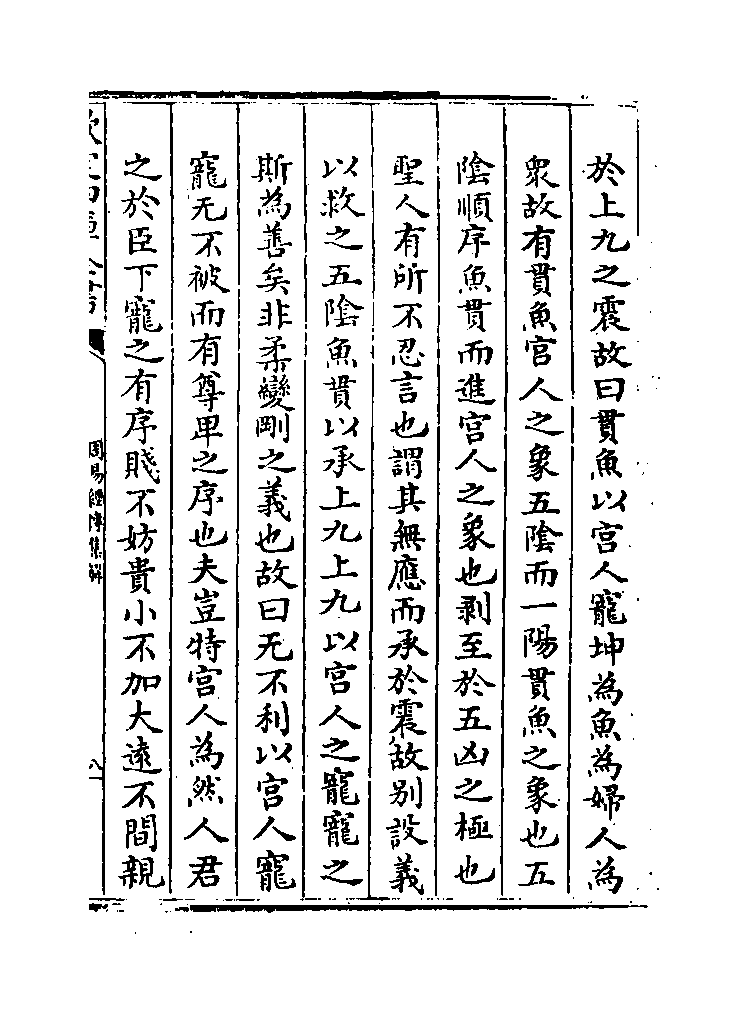 於上九之震故曰貫魚以宫人寵坤為魚為婦人為
衆故有貫魚宫人之象五陰而一陽貫魚之象也五
陰順序魚貫而進宫人之象也剥至於五凶之極也
聖人有所不忍言也謂其無應而承於震故别設義
以救之五陰魚貫以承上九上九以宫人之寵寵之
斯為善矣非柔變剛之義也故曰无不利以宫人寵
寵无不被而有尊卑之序也夫豈特宫人為然人君
之於臣下寵之有序賤不妨貴小不加大逺不間親
周易經傳集解